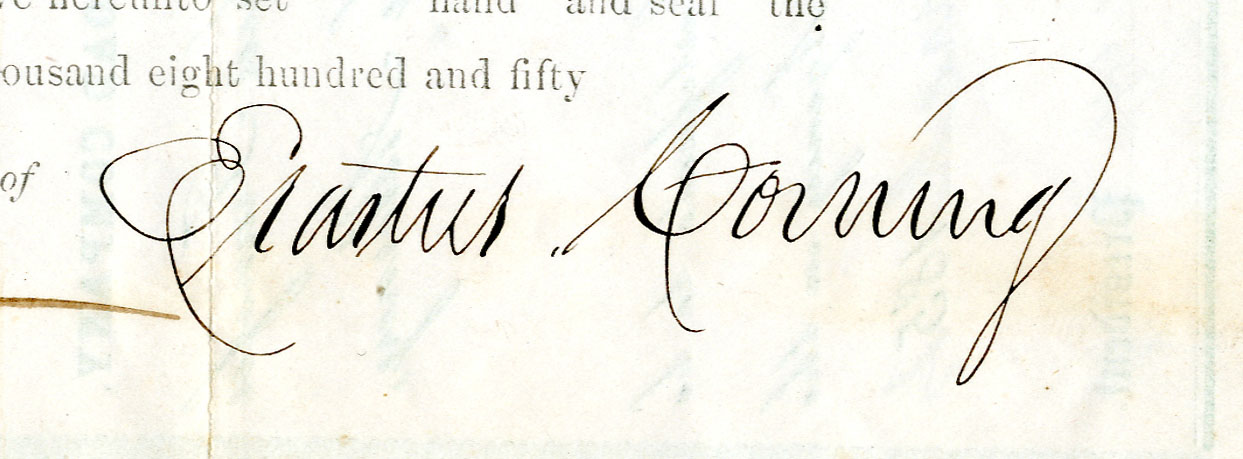 hereunto set hand and seal the
ousand eight hundred and fifty
of
Erastus Corning